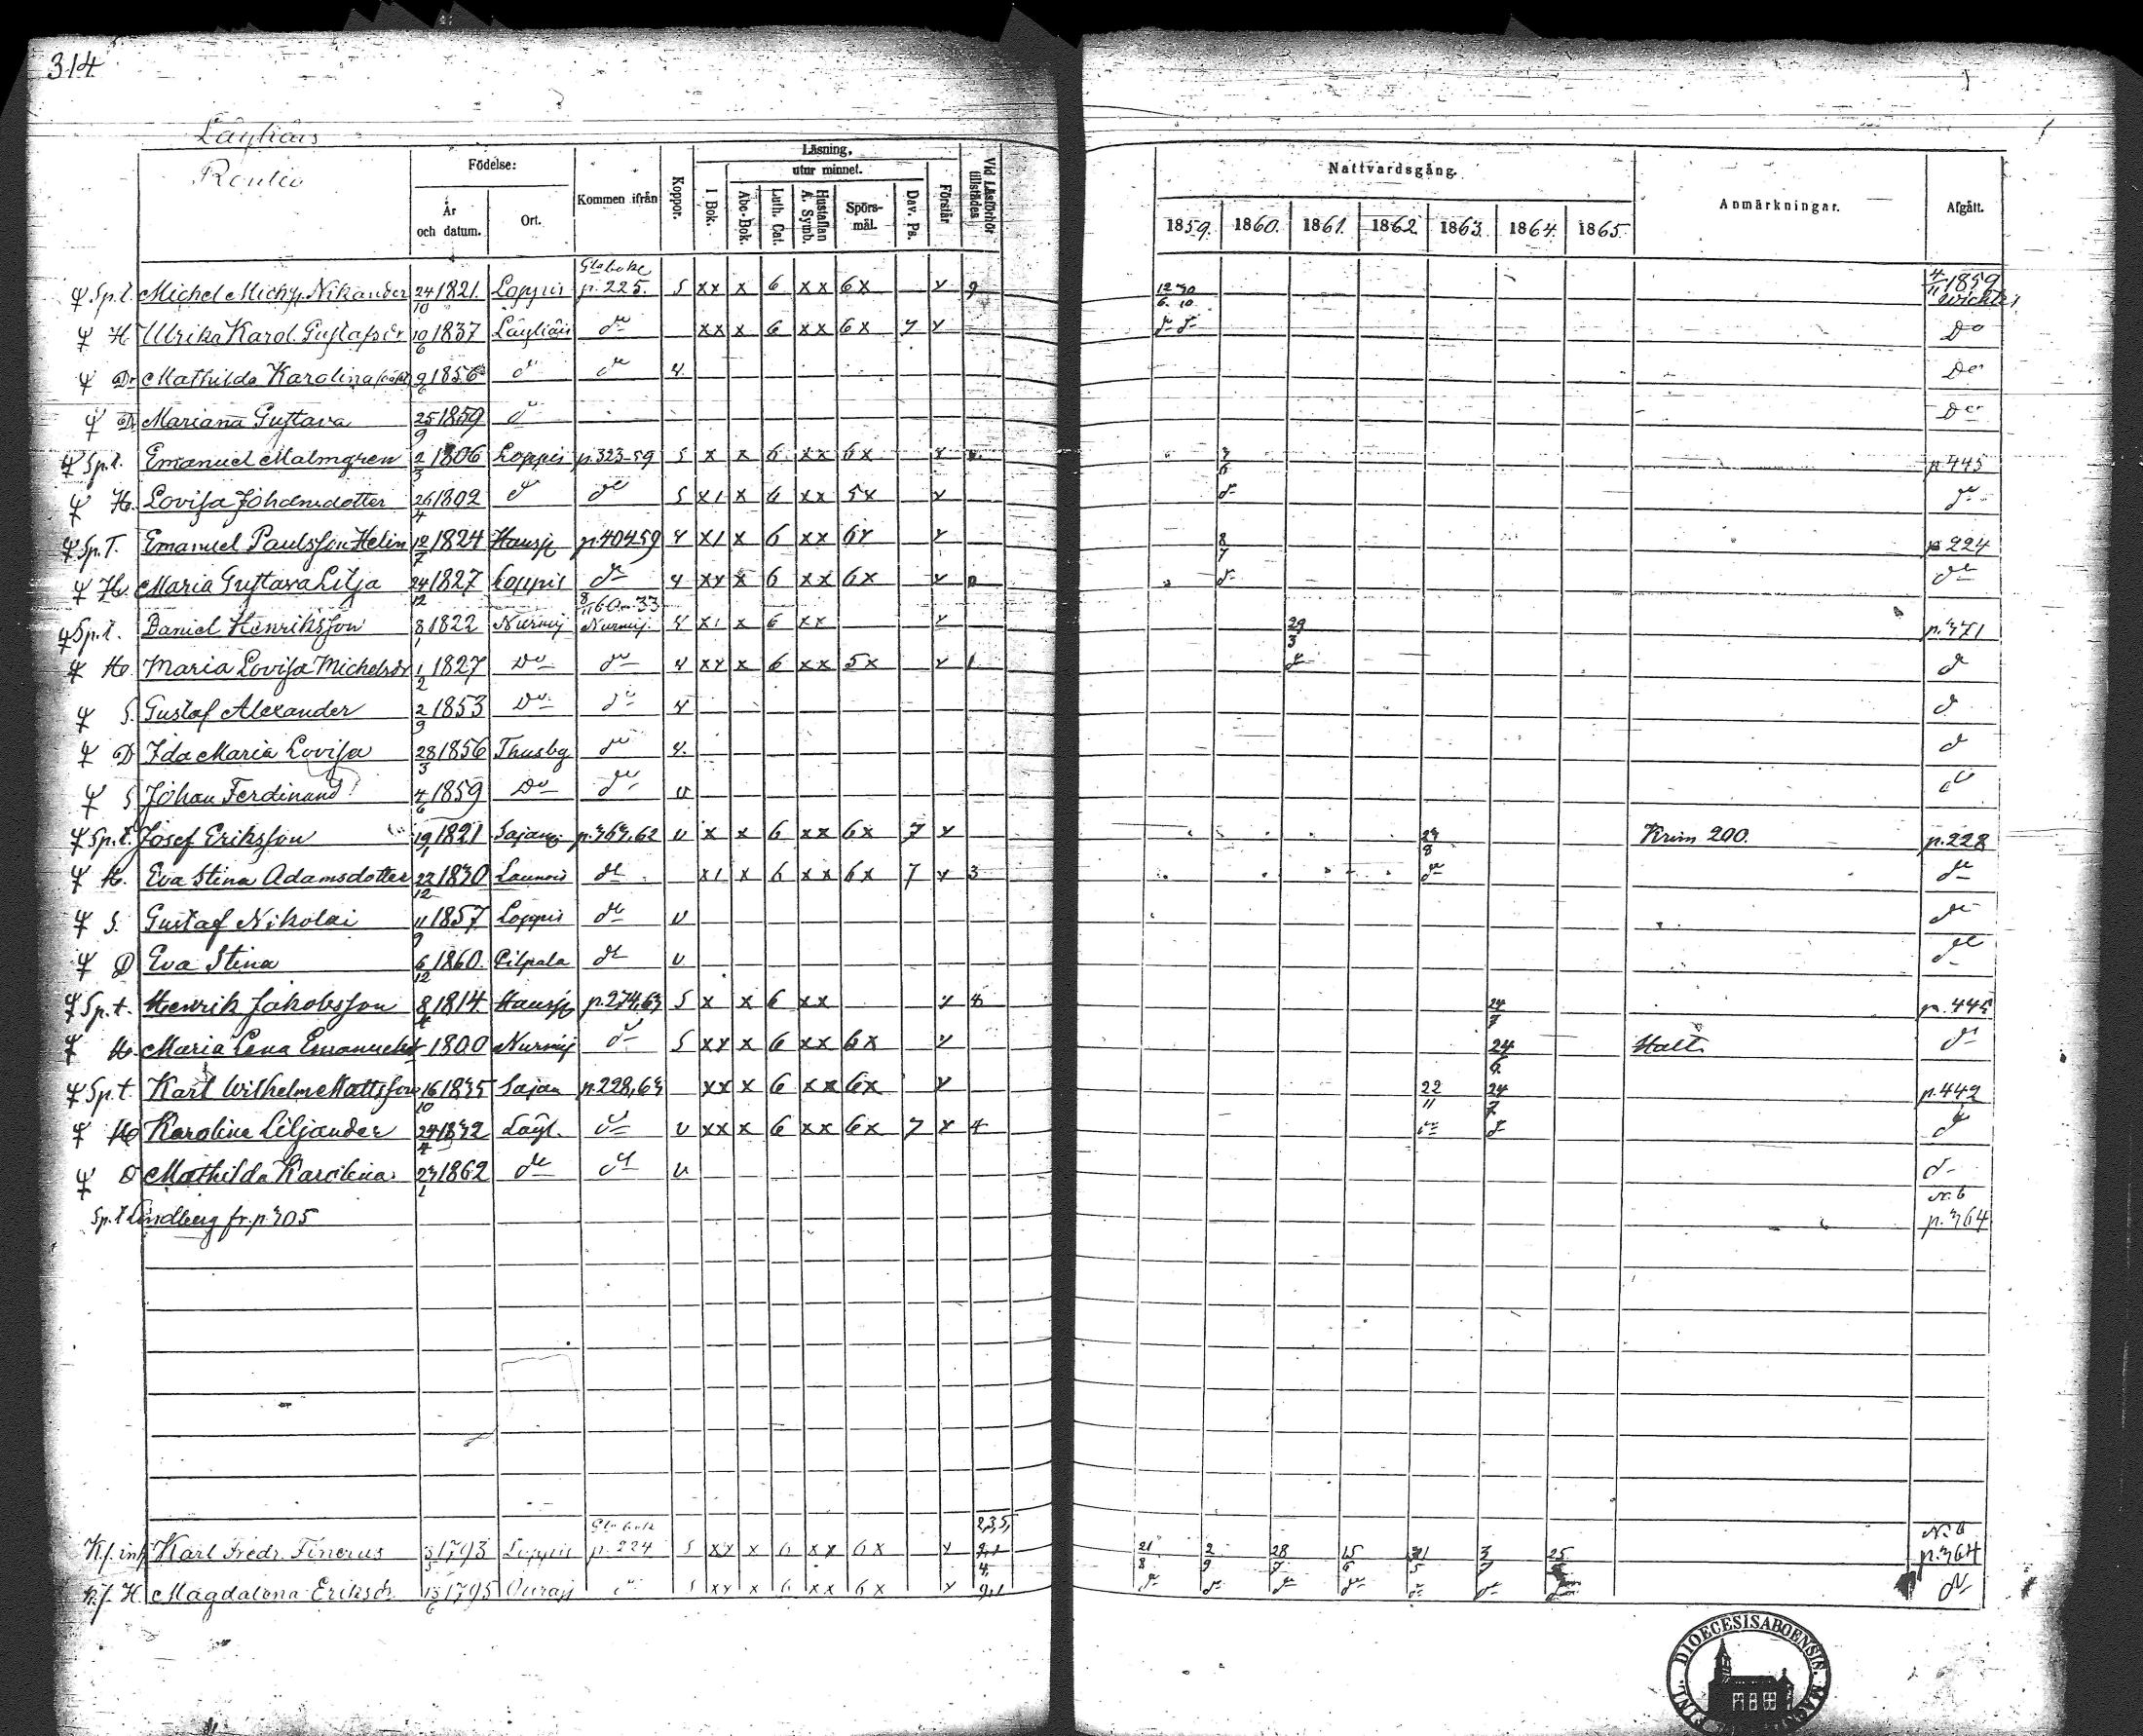 314
Läyliäis
Födelse: Kommen ifrån Koppor. Läsning, Vid Läsförhör tillstädes
År och datum. Ort. I Bok. utur minnet. Förstår
Abc-Bok. Luth. Cat. Hustaflan A. Symb. Spörs-mål. Dav. Ps.
Nattvardsgång. Anmärkningar. Afgått.
1859. 1860. 1861. 1862. 1863. 1864. 1865.
Sp.t. Michel Nikander 24/10 1821. Loppis p. 225. 5 xx x 6 xx 6x 9 12 30 6. 10 4/11 1859
H Ulrika Karol. Gustafsdr 10/6 1837 Läyliäis do xx x 6 xx 6x 7 Do
Dr Mathilda Karolina 9/6 1856 do do Do
D. Mariana Gustava 25/9 1859 do Do
Sp.t. Emanuel Malmgren 2/3 1806 Loppis p.323 59 5 x x 6 xx 6x p 445
H. Lovisa Johansdotter 26/4 1802 do do 5 x1 x 4 xx 5x do
Sp.T. Emanuel Paulsson Helin 12/7 1824 Hausj p.404 59 x1 x 6 xx 8/7 p 224
H. Maria Gustava Lilja 24/12 1827 Loppis do x 6 xx 6x do
8/11 60 n 33
Sp.t. Daniel Henriksson 8/1 1822 Nurmij Nurmij. x 6 xx 29/3 p. 371
H. Maria Lovisa Michelsdr 1/2 1827 Do do x 6 xx 5x 1 do
S. Gustaf Alexander 2/9 1853 Do do
D Ida Maria Lovisa 28/3 1856 Thusby do
S. Johan Ferdinand 4/6 1859 Do do
Sp.t. Josef Eriksson 19/1 1821 p.363,62 v x x 6 xx 6x 7 23/8 Krim 200. p.228
H. Eva Stina Adamsdotter 22/12 1830 do x1 x 6 xx 6x 7 3 do do
S. Gustaf Nikolai 11/9 1857 Loppis do v do
D Eva Stina 6/12 1860. Pilpala do v do
Sp.t. Henrik Jakobsson 8/4 1814. Hausj p.274,63 5 x x 6 xx 8 p. 445
H. Maria Lena Emanuelsdr 1800 Nurmij do 5 x 6 xx 6x 24/6. Halt. do
Sp.t. Karl Wilhelm Mattsson 16/10 1835 Sajan p.228,63 xx x 6 xx 6x 22/11 24/7 p.442
H Karolina Liljander 24/4 1832 Läyl. do v xx x 6 xx 6x 7 4 do do do
D Mathilda Karolina 23/1 1862 do do v do
N. 6
Sp.t Lindberg fr. p. 305 p. 364
2,3,5, N. 6
Karl Fredr. Finerus 1793 Loppis p. 224 5 xx x 6 xx 6x 21/8 2/9 28/7 15/6 31/5 3/7 25 p. 364
H. Magdalena Eriksdr 13/6 1795 do 5 xx x 6 xx 6x do do do do do do do
DIOECESIS ABOENSIN. MAG FINL.